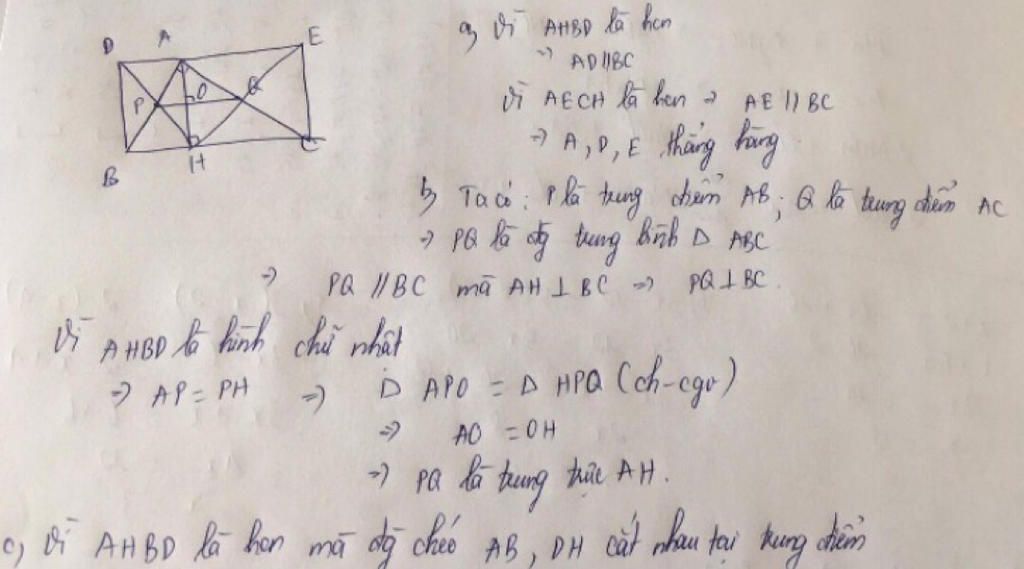 D A E
P O Q
B H C
a, Vì AHBD là hcn
=> AD//BC
Vì AECH là hcn => AE // BC
=> A, D, E thẳng hàng
b, Ta có: P là trung điểm AB; Q là trung điểm AC
=> PQ là đg trung bình Δ ABC
=> PQ // BC mà AH ⊥ BC => PQ ⊥ BC.
Vì AHBD là hình chữ nhật
=> AP = PH => Δ APO = Δ HPQ (ch-cgv)
=> AO = OH
=> PQ là trung trực AH.
c, Vì AHBD là hcn mà đg chéo AB, DH cắt nhau tại trung điểm